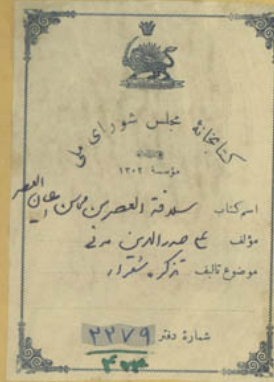 کتابخانهٔ مجلس شورای ملی
مؤسسهٔ ۱۳۰۲
اسم کتاب سلافة العصر من محاسن اعیان العصر
مؤلف صدرالدین مدنی
موضوع تألیف تذکره شعراء
شمارهٔ دفتر ۲۲۷۹